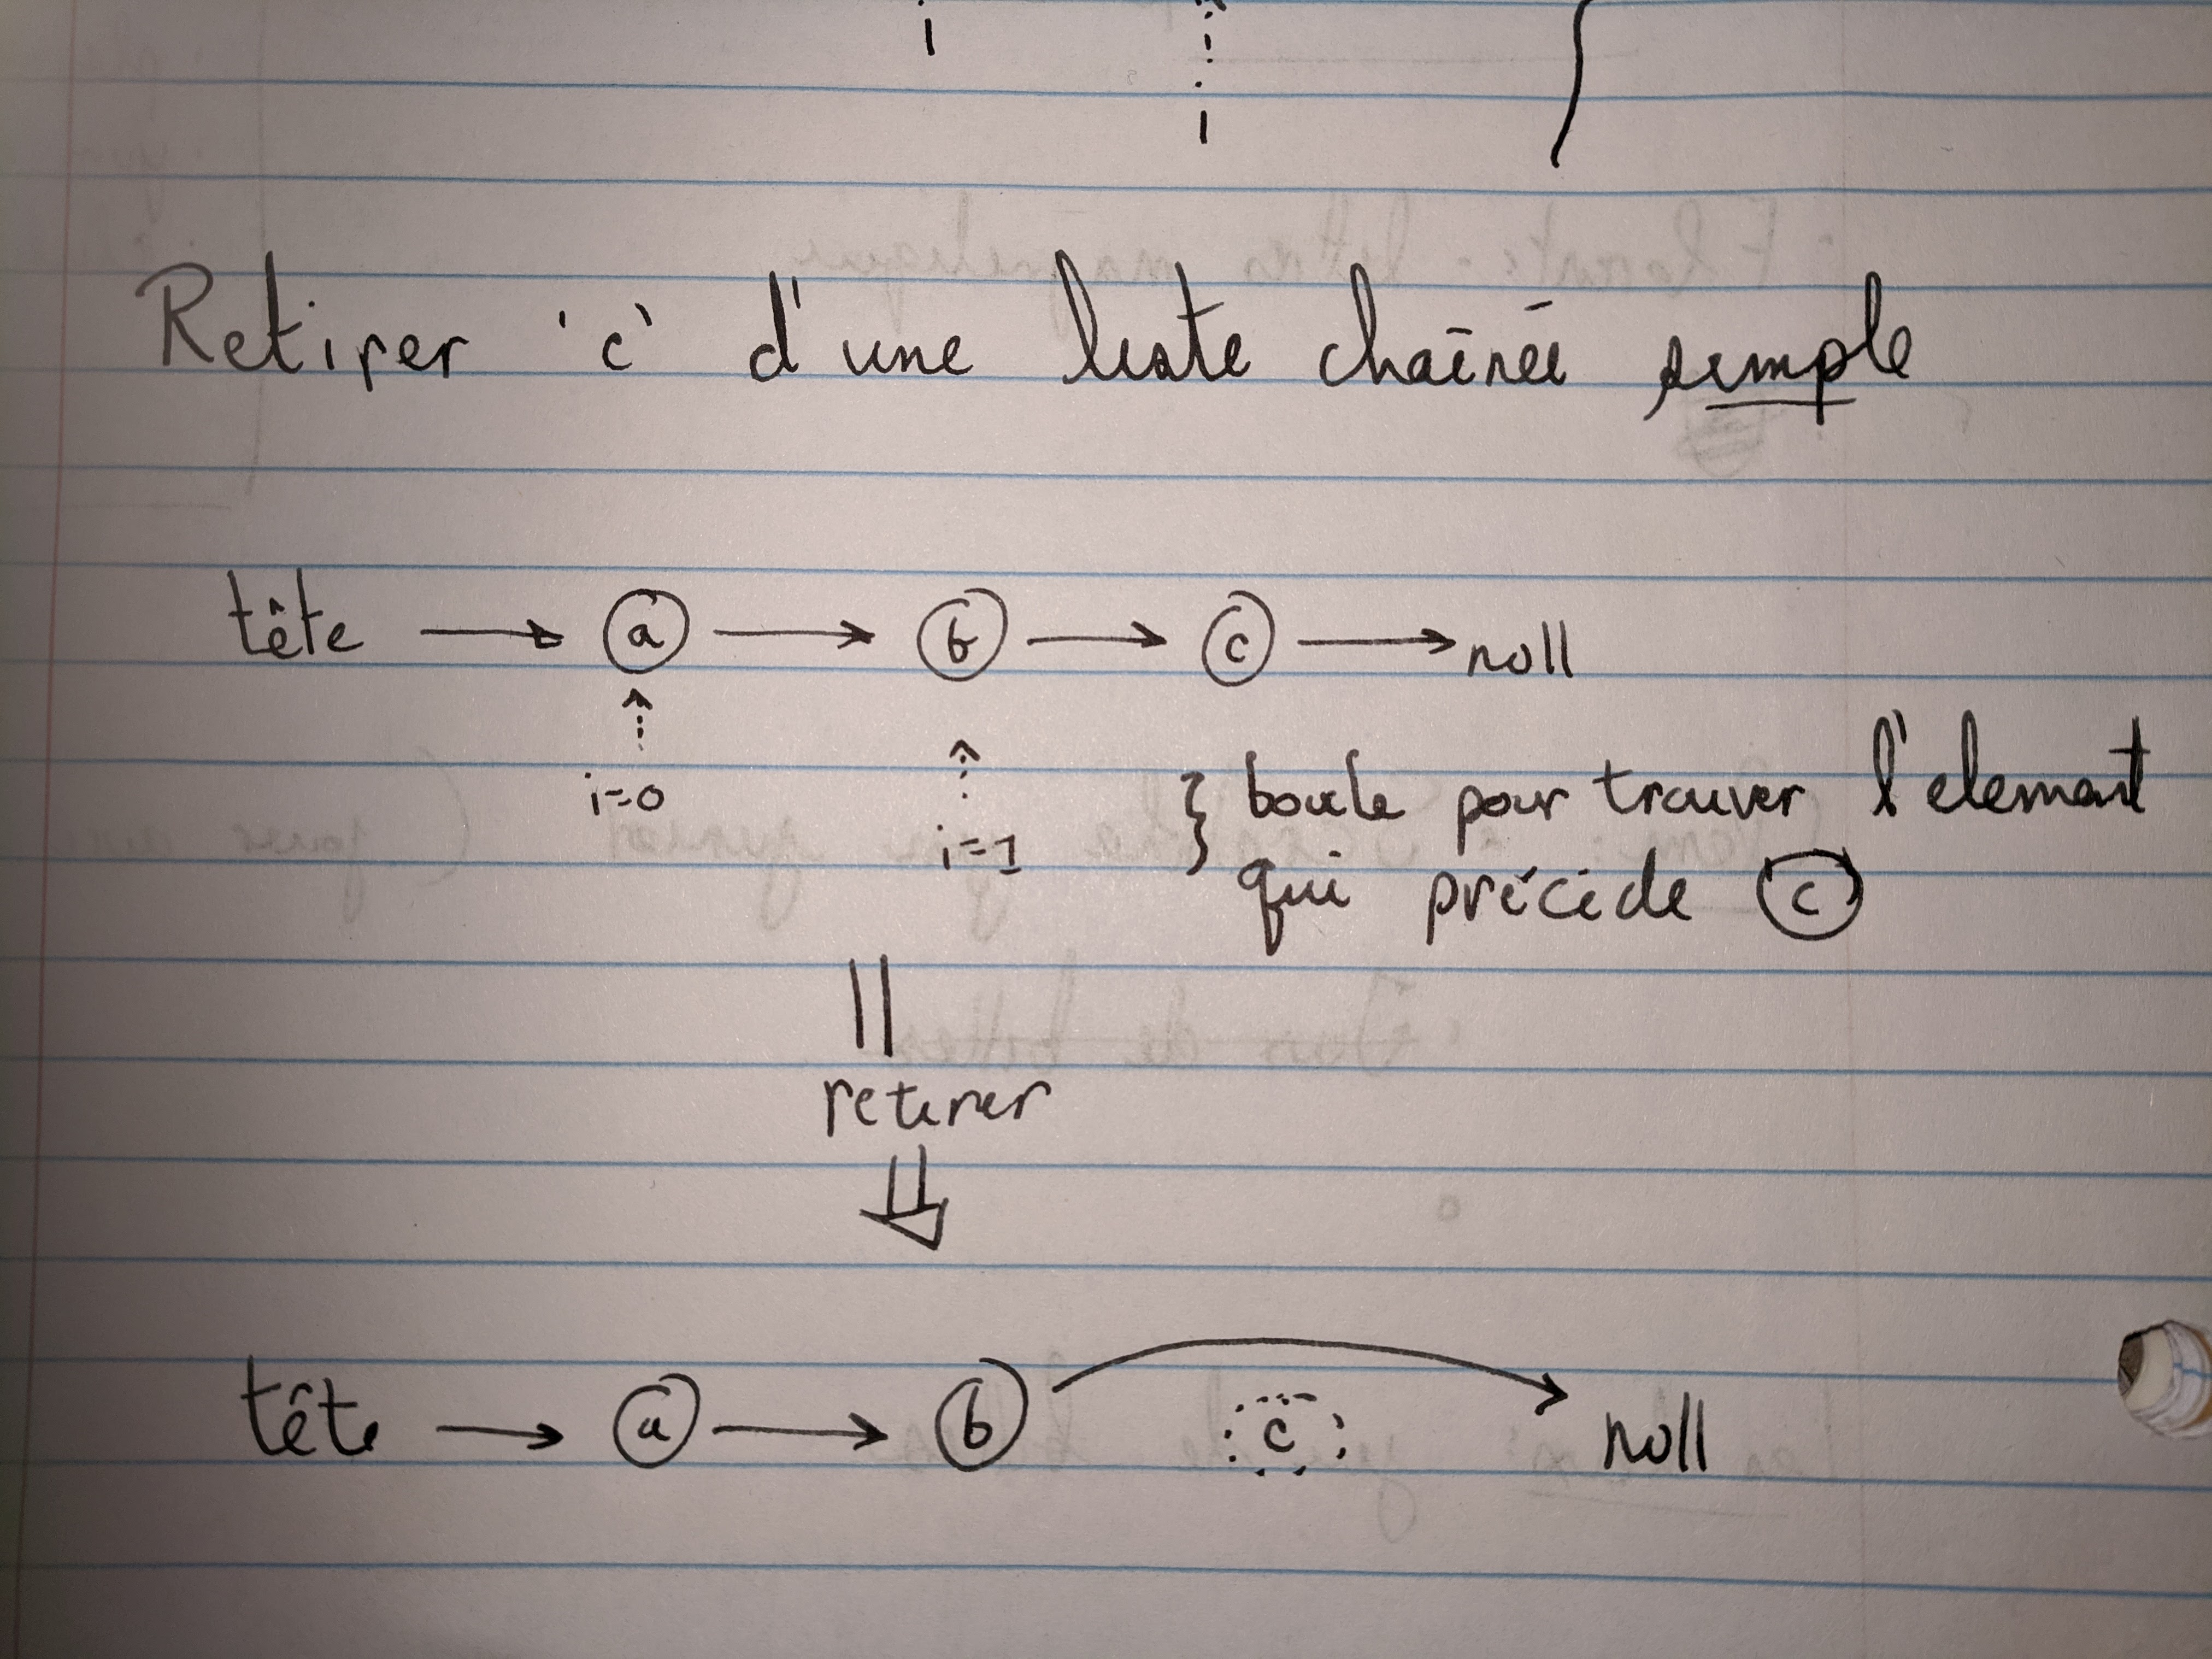 i
i
Retirer 'c' d'une liste chaînée simple
tête → a → b → c → null
i=0
i=1
} boucle pour trouver l'element
qui précède c
retirer
tête → a → b c null